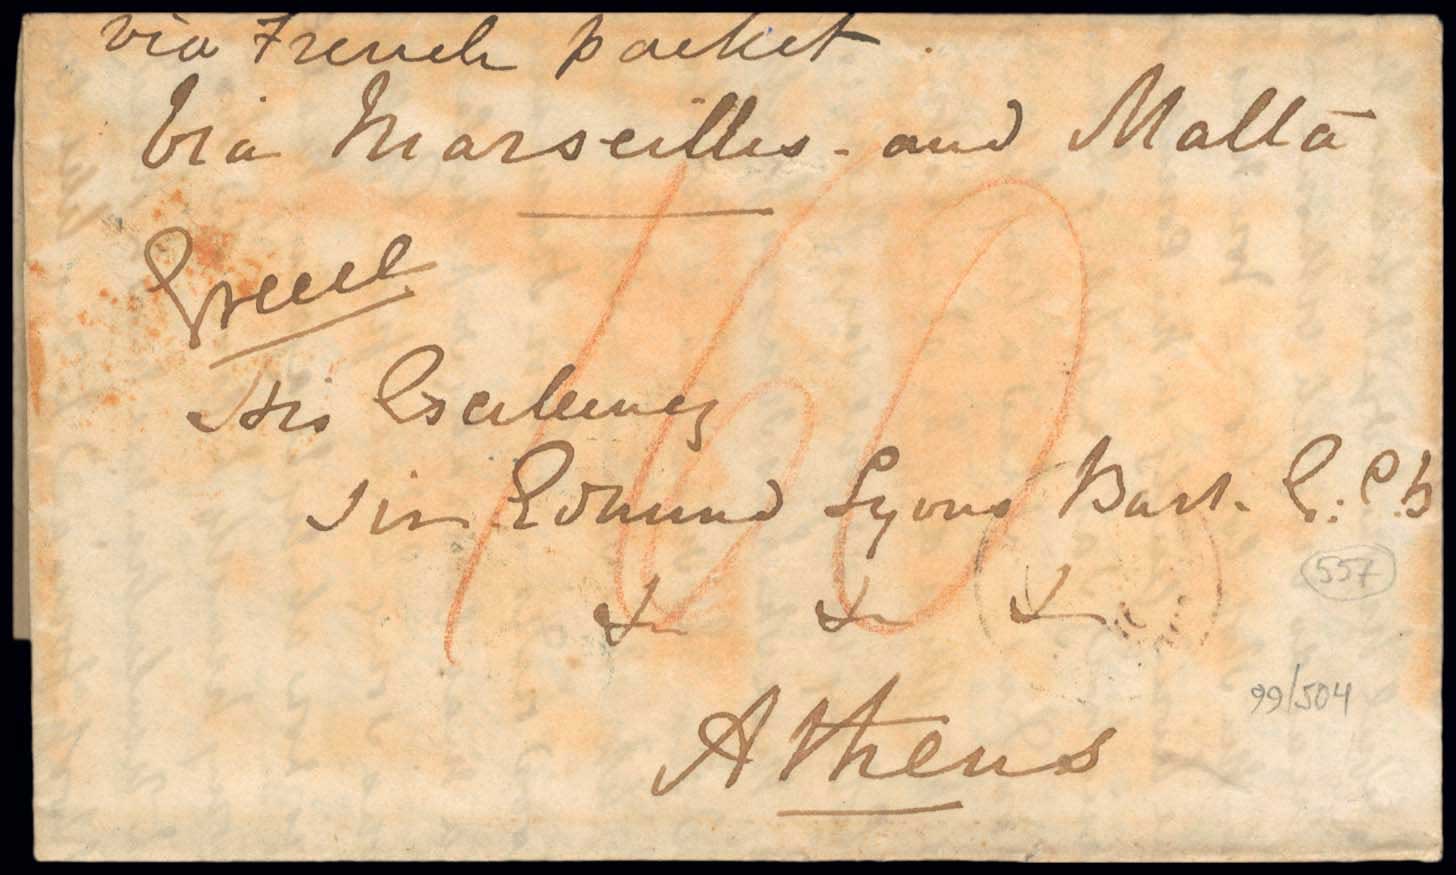 via French packet
Via Marseilles - and Malta
160
Greece
His Excellency
Sir Edmund Lyons Bart. G. C. B
&c &c &c
557
99/504
Athens